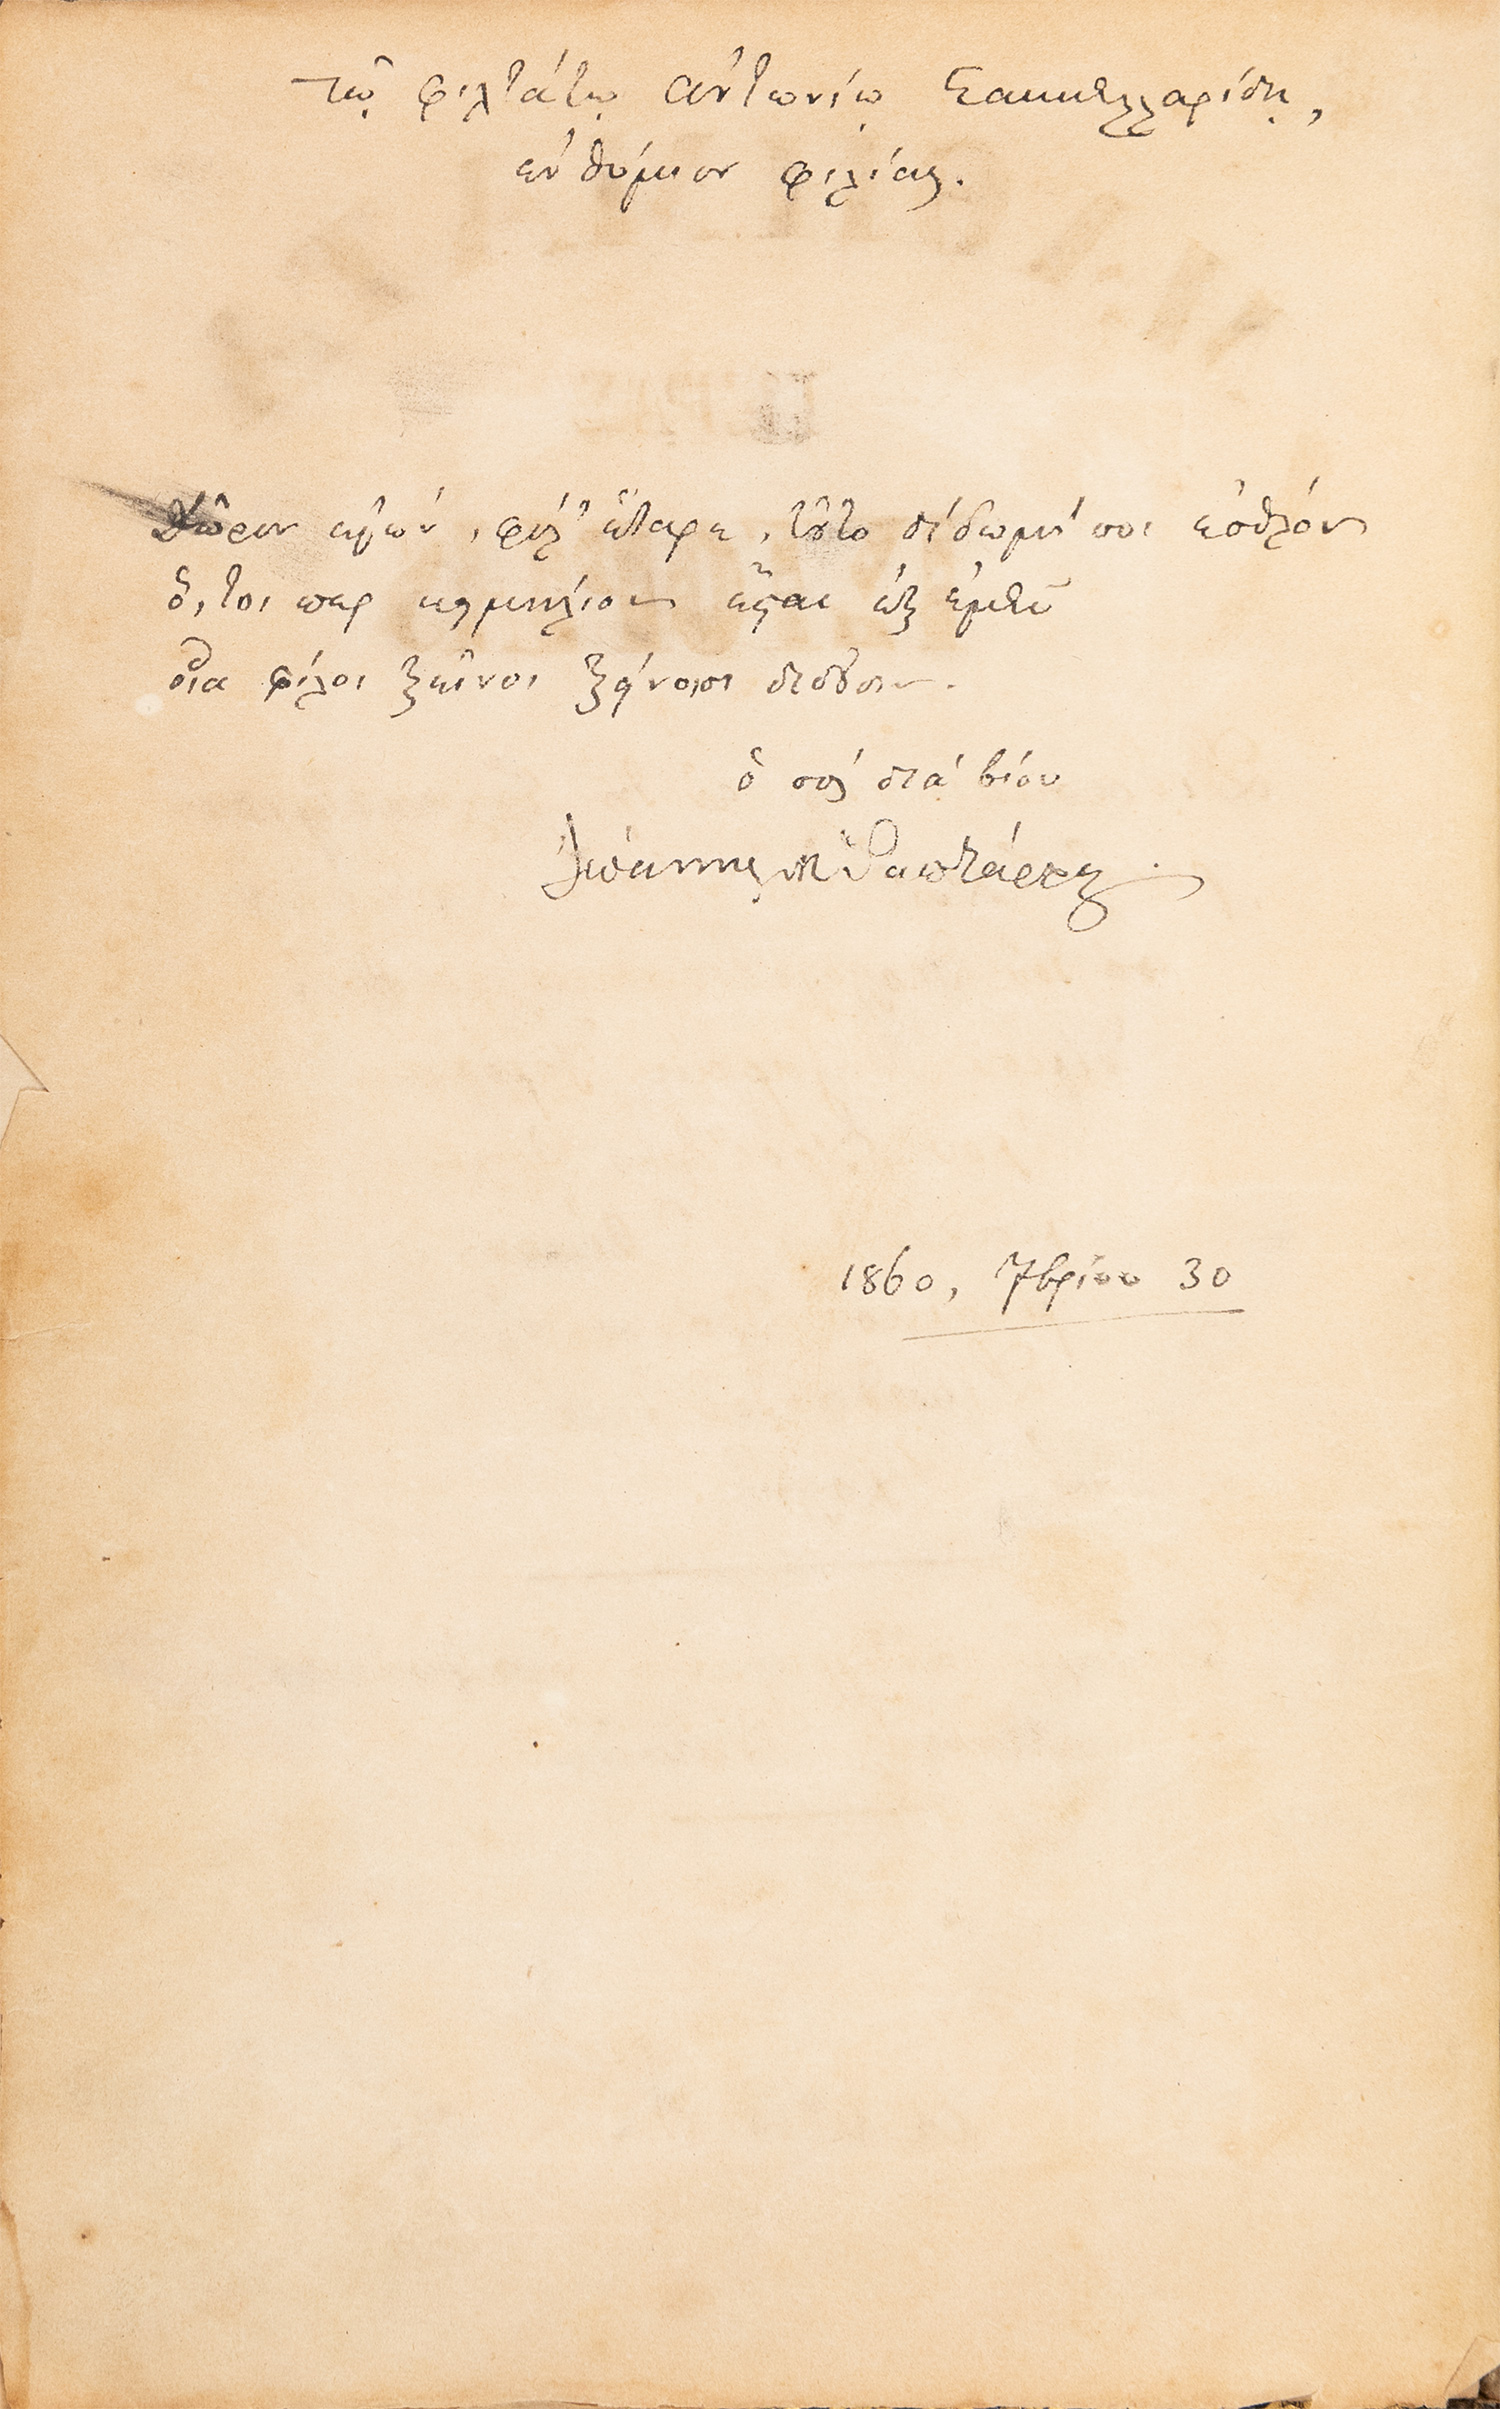 τῷ φιλτάτῳ Ἀντωνίῳ Σακκελλαρίδῃ,
ἐνθύμιον φιλίας.
Δῶρον ἐμόν, φίλ' ἕταρε, τȣ̃το δίδωμί σοι ἐσθλόν
ὅ,τοι περ κειμήλιον ἔσται ἐξ ἐμεῦ
οἷα φίλοι ξεῖνοι ξείνοισι διδȣ̃σιν.
ὁ σὸς διὰ βίου
Ἰωάννης
1860, 7βρίου 30